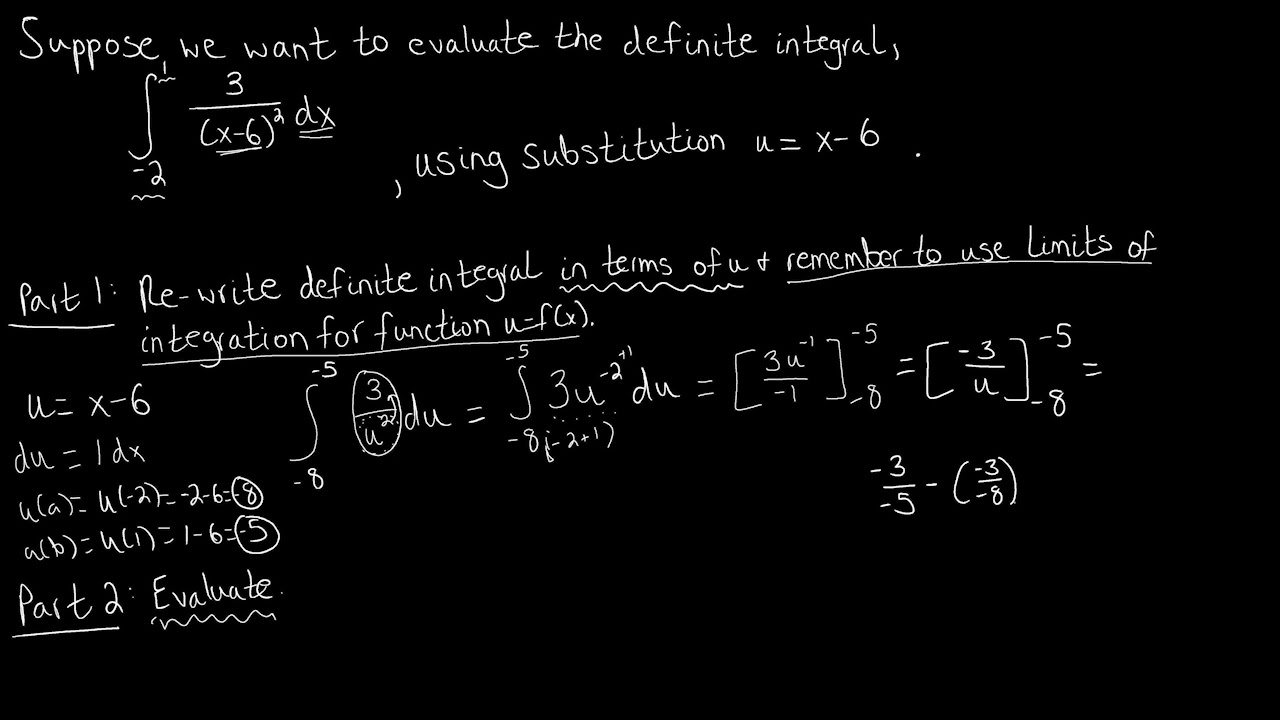 Suppose, we want to evaluate the definite integral,
∫₋₂¹ 3/(x-6)² dx , using substitution u = x-6 .
Part 1: Re-write definite integral in terms of u & remember to use limits of
integration for function u=f(x).
u = x-6
du = 1dx
u(a) = u(-2) = -2-6 = -8
u(b) = u(1) = 1-6 = -5
∫₋₈⁻⁵ 3/u² du = ∫₋₈⁻⁵ 3u⁻²⁺¹ du = [3u⁻¹/-1]₋₈⁻⁵ = [-3/u]₋₈⁻⁵ =
(-2+1)
-3/-5 - (-3/-8)
Part 2: Evaluate.